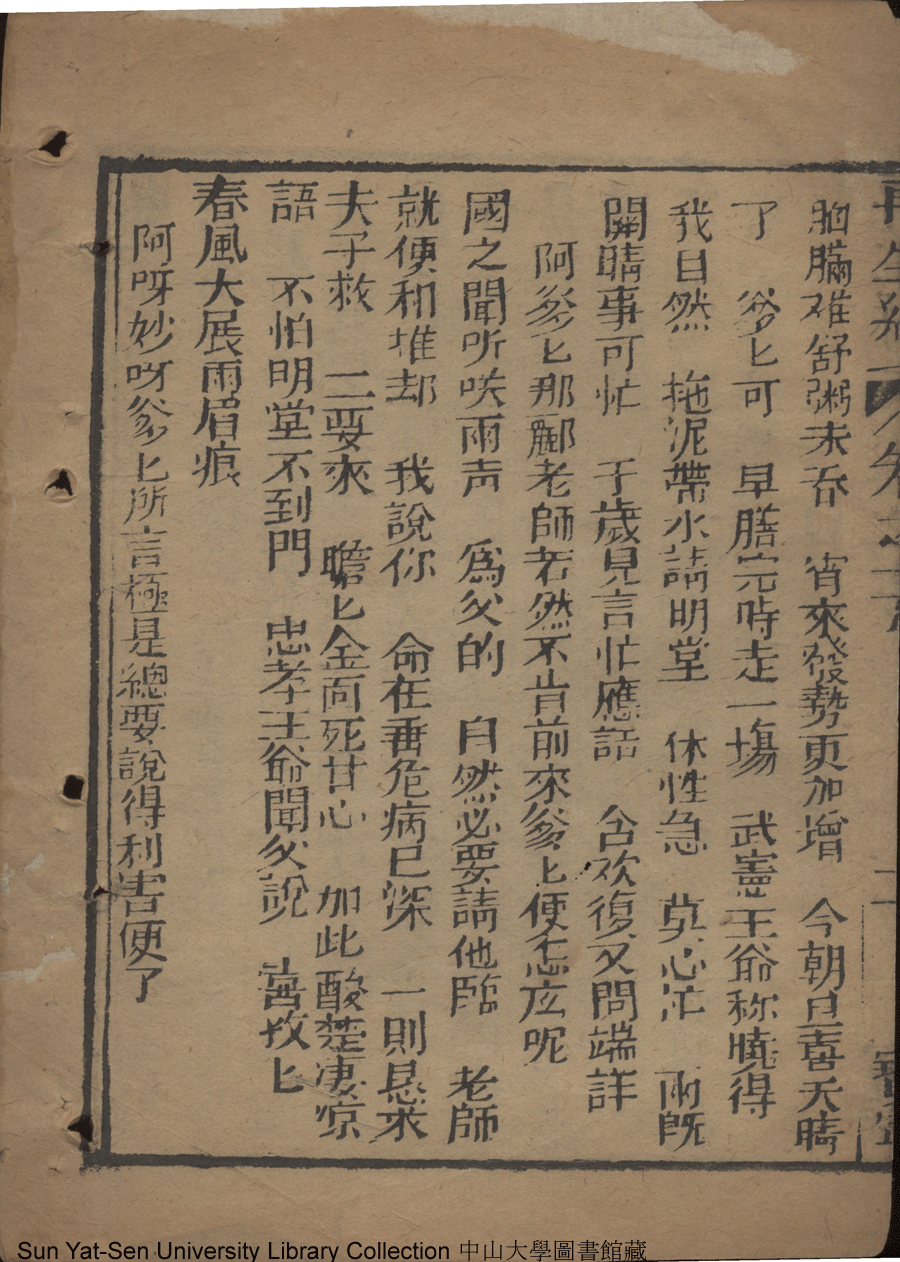 胸膈难舒粥未吞　宵來發勢更加增　今朝且喜天晴
了　爹匕可　早膳完時走一塲　武憲王爺称曉得
我自然　拖泥帶水請明堂　休性急　莫心忙　雨旣
開晴事可忙　千歲見言忙應話　含欢復又問端詳
阿爹匕那酈老師若然不肯前來爹匕便怎庅呢
國之聞听咲雨声　爲父的　自然必要請他臨　老師
就便和推却　我說你　命在垂危病已深　一則恳求
夫子救　二要來　瞻匕金面死甘心　加此酸楚凄凉
語　不怕明堂不到門　忠孝王爺聞父說　喜孜匕
春風大展雨眉痕
阿呀妙呀爹匕所言極是總要說得利害便了
Sun Yat-Sen University Library Collection 中山大學圖書館藏